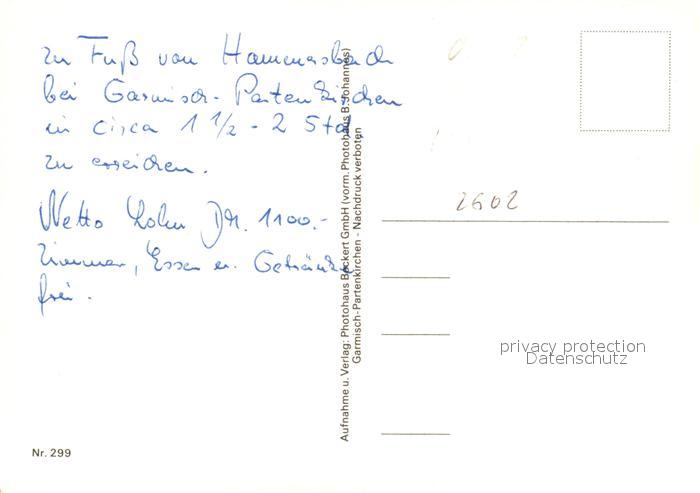 zu Fuß von Hammersbach
bei Garmisch-Partenkirchen
in circa 1 1/2 - 2 Std
zu erreichen.
Netto Lohn DM. 1100.-
Zimmer, Essen u. Getränke
frei.
Nr. 299
Aufnahme u. Verlag: Photohaus Beckert GmbH (vorm. Photohaus B. Johannes)
Garmisch-Partenkirchen - Nachdruck verboten
2602
privacy protection
Datenschutz